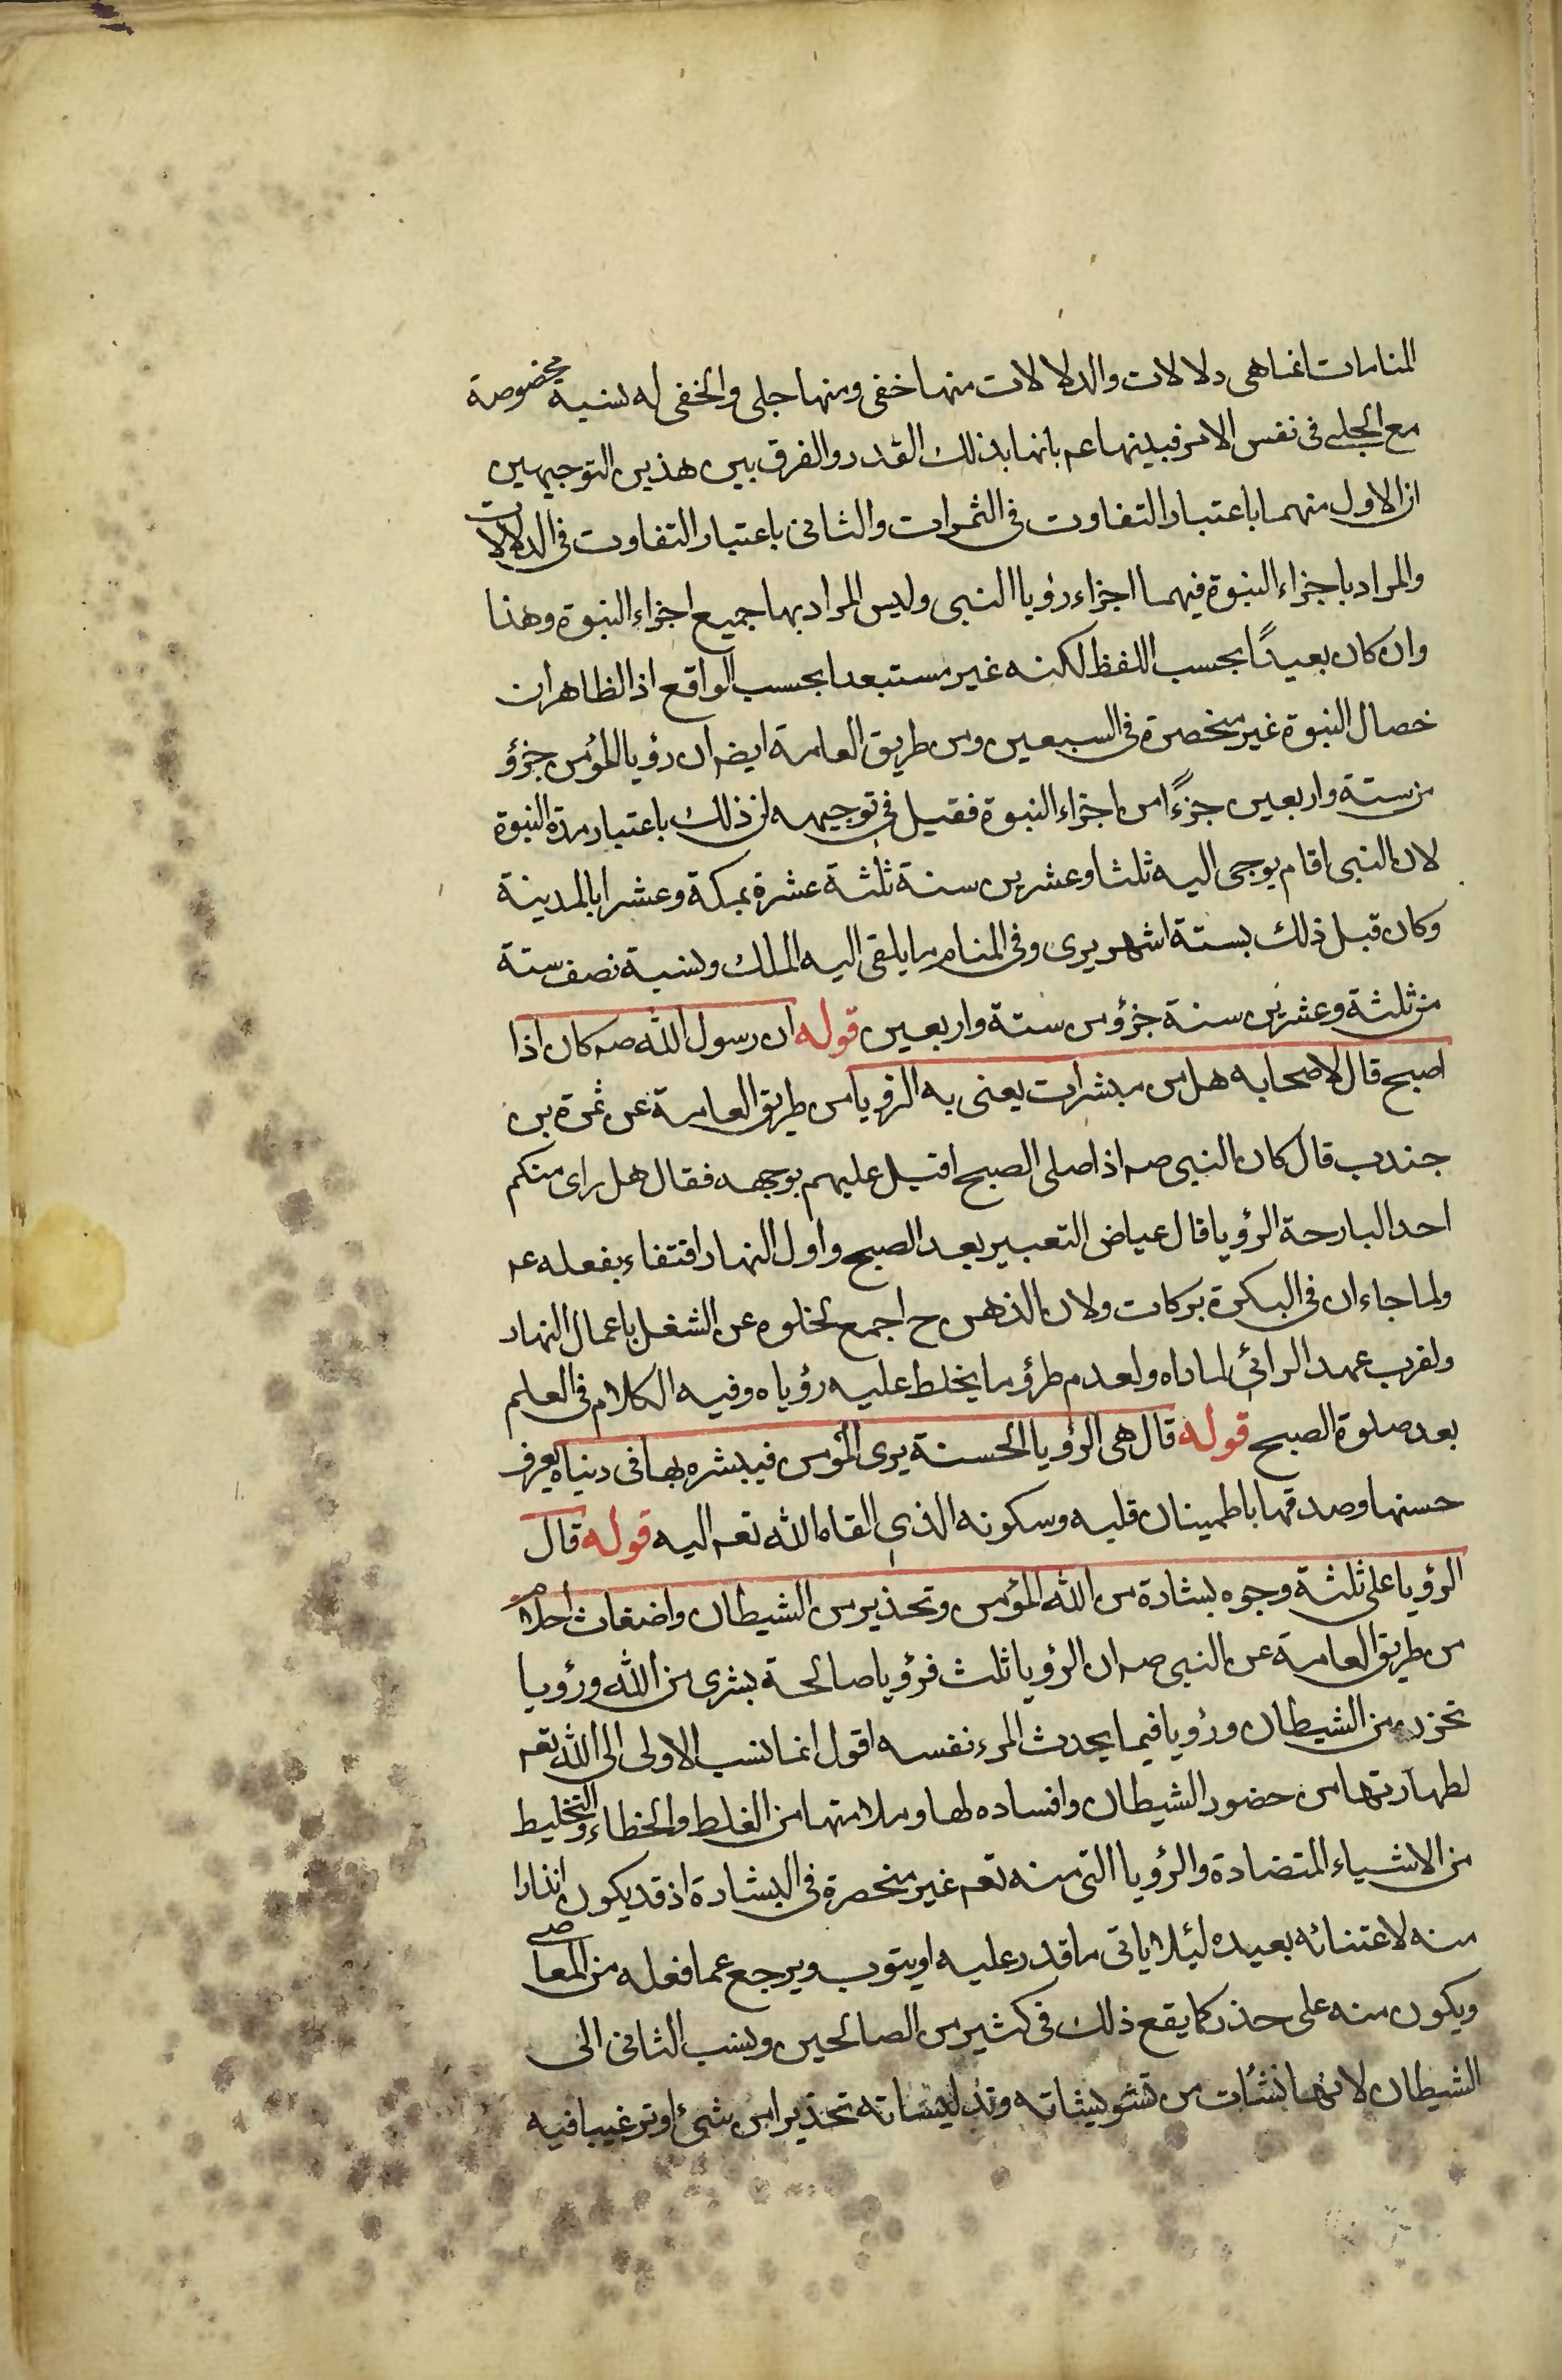 المنامات انما هى دلالات والدلالات منها خفى ومنها جلى والخفى له نسبة مخصوصة
مع الجلى فى نفس الامر فبينها عم بانها بذلك القدر والفرق بين هذين التوجيهين
ان الاول منهما باعتبار التفاوت فى الثمرات والثانى باعتبار التفاوت فى الدلالات
والمراد باجزاء النبوة فيهما اجزاء رؤيا النبى وليس المراد بها جميع اجزاء النبوة وهذا
وان كان بعيدًا بحسب اللفظ لكنه غير مستبعد بحسب الواقع اذ الظاهر ان
خصال النبوة غير منحصرة فى السبعين ومن طريق العامة ايضه ان رؤيا المؤمن جزؤ
من ستة واربعين جزءًا من اجزاء النبوة فقيل فى توجيهه ان ذلك باعتبار مدة النبوة
لان النبى اقام يوحى اليه ثلثا وعشرين سنة ثلثة عشرة بمكة وعشرا بالمدينة
وكان قبل ذلك بستة اشهر يرى وفى المنام ما يلقى اليه الملك ونسبة نصف ستة
من ثلثة وعشرين سنة جزؤ من ستة واربعين قوله ان رسول الله صه كان اذا
اصبح قال لاصحابه هل من مبشرات يعنى به الرؤيا من طريق العامة عن ثمرة بن
جندب قال كان النبى صه اذا صلى الصبح اقبل عليهم بوجهه فقال هل راى منكم
احد البارحة الرؤيا قال عياض التعبير بعد الصبح واول النهار اقتفاء بفعله عم
ولما جاء ان فى البكرة بركات ولان الذهن ح اجمع لخلوه عن الشغل باعمال النهار
ولقرب عهد الرائى لما راه ولعدم طرؤ ما يخلط عليه رؤياه وفيه الكلام فى العلم
بعد صلوة الصبح قوله قال هى الرؤيا الحسنة يرى المؤمن فيبشره بها فى دنياه يعرف
حسنها وصدقها باطمينان قلبه وسكونه الذى القاه الله تعه اليه قوله قال
الرؤيا على ثلثة وجوه بشارة من الله المؤمن وتحذير من الشيطان واضغاث احلام
من طريق العامة عن النبى صه ان الرؤيا ثلث فرؤيا صالحة بشرى من الله ورؤيا
تحزن من الشيطان ورؤيا فيما يحدث المرء نفسه اقول انما نسب الاولى الى الله تعه
لطهارتها من حضور الشيطان وافساده لها وسلامتها من الغلط والخطاء والتخليط
من الاشياء المتضادة والرؤيا التى منه تعه غير منحصرة فى البشارة اذ قد يكون انذارا
منه لاعتنائه بعبده لئلا ياتى ما قدر عليه او يتوب ويرجع عما فعله من المعاصى
ويكون منه على حذر كما يقع ذلك فى كثير من الصالحين ونسب الثانى الى
الشيطان لانها نشأت من تشويشاته وتدليساته تحذيرا من شئ او ترغيبا فيه